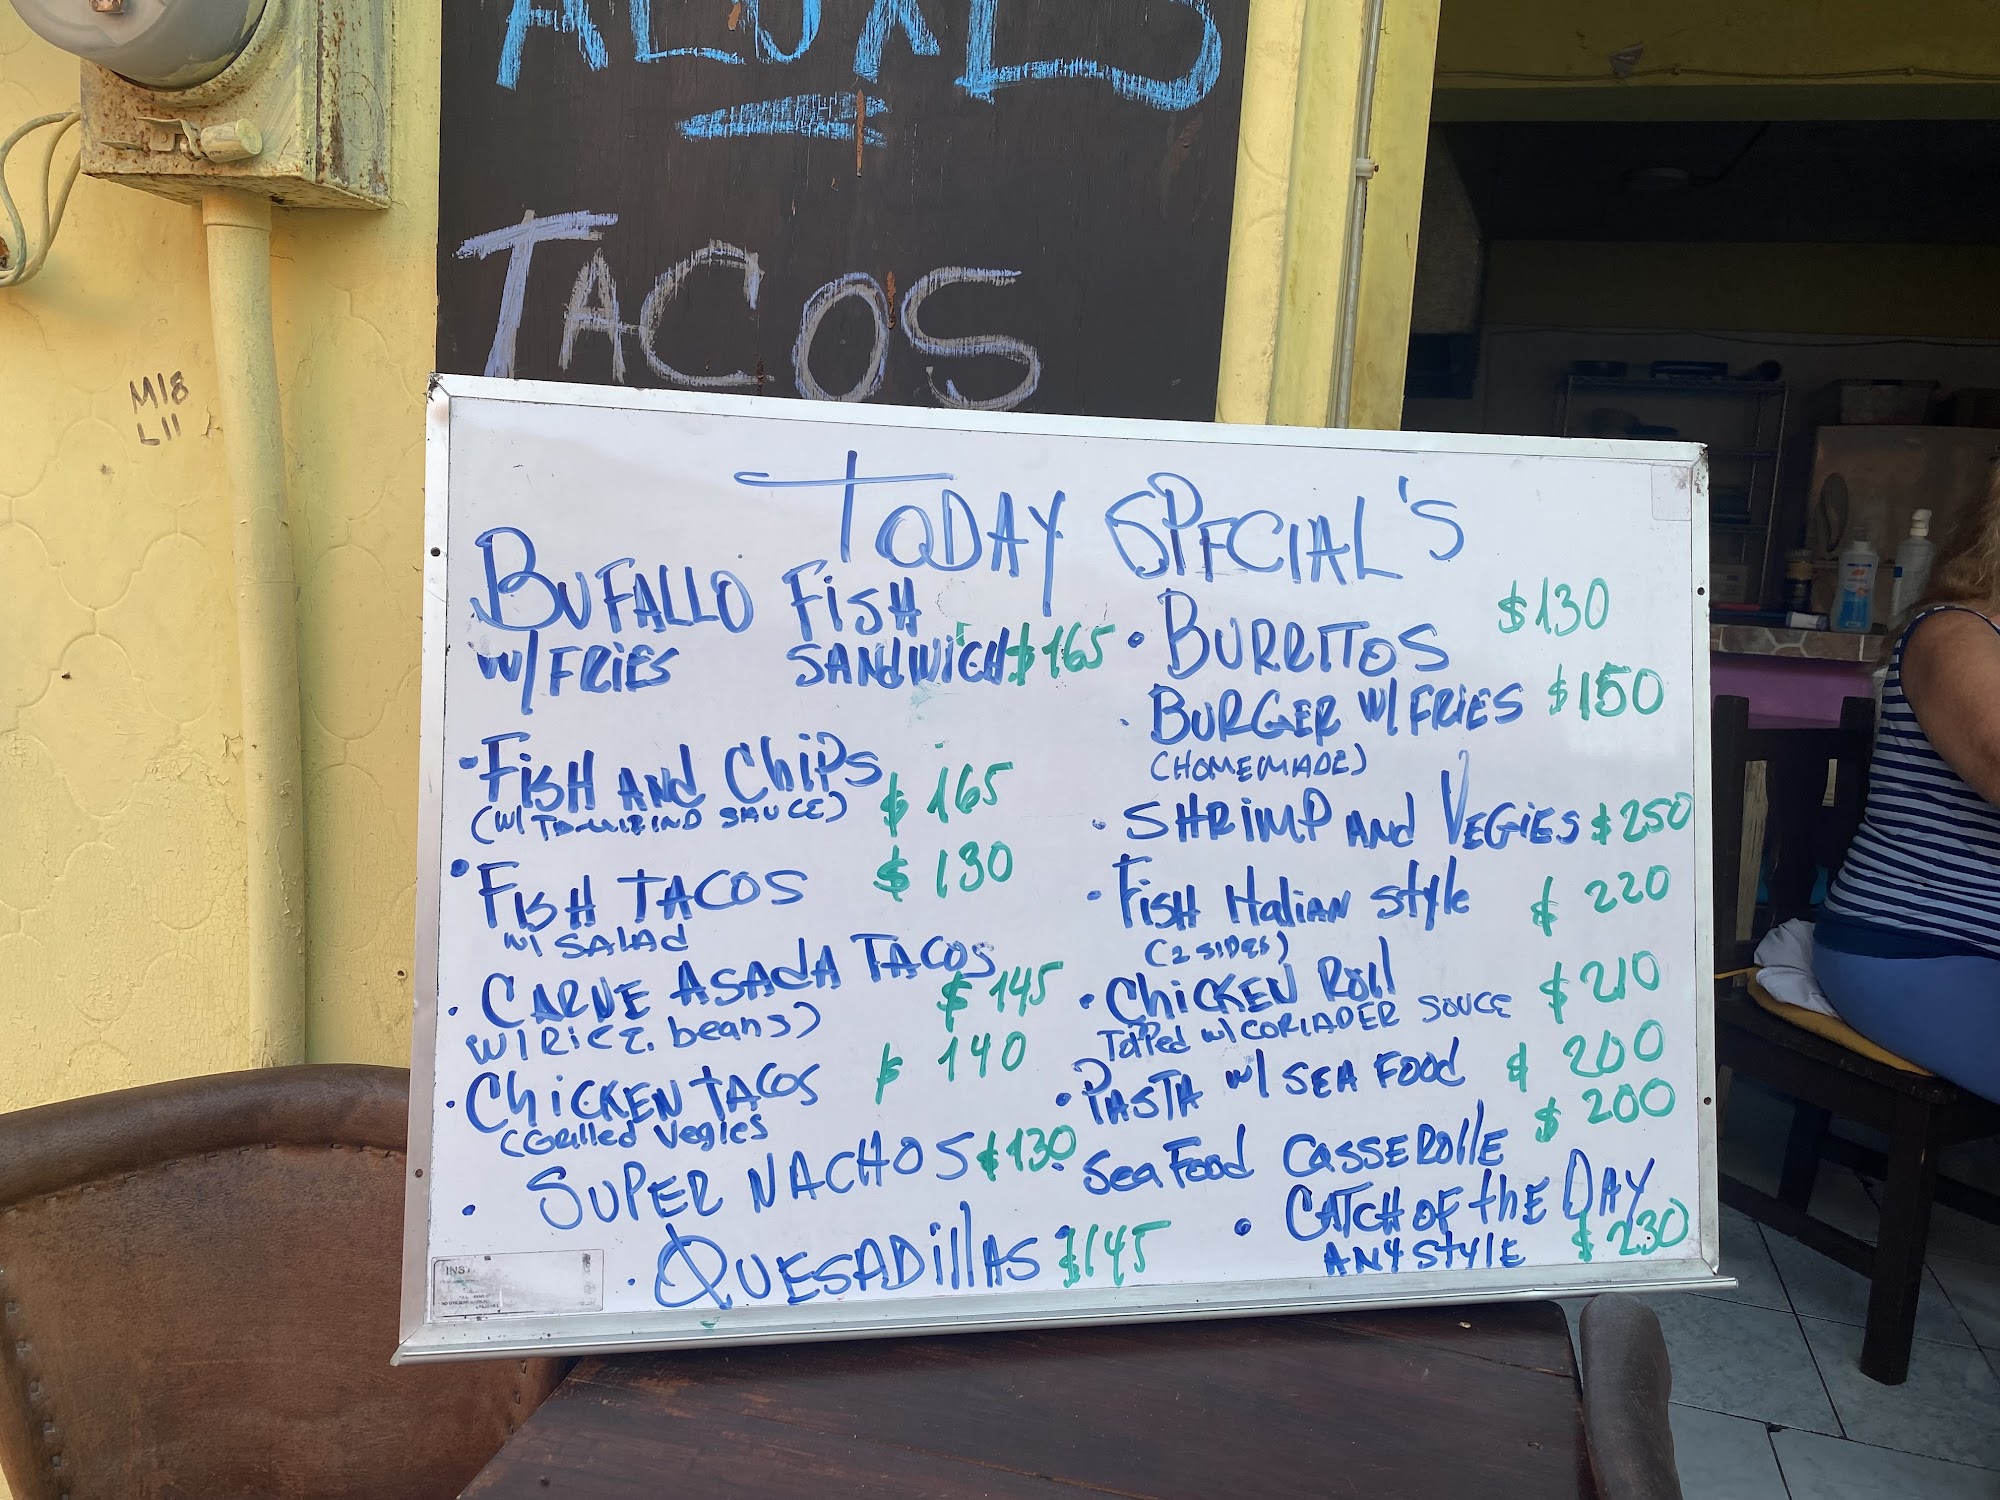 TACOS
M18
L11
TODAY SPECIAL'S
BUFALLO FISH
W/ FRIES SANDWICH $165
• FISH AND CHIPS
(W/ SAUCE) $165
• FISH TACOS $130
W/ SALAD
• CARNE ASADA TACOS
W/ RICE. beans) $145
• CHICKEN TACOS $140
(Grilled Vegies
• SUPER NACHOS $130
• QUESADillAS $145
• BURRITOS $130
• BURGER W/ FRIES $150
(HOMEMADE)
• SHRIMP AND VEGIES $250
• FISH Italian style $220
(2 SIDES)
• CHICKEN Roll $210
Topped w/ CORIADER SOUCE
• PASTA W/ SEA FOOD $200
• Sea Food CASSEROllE $200
• CATCH OF the DAY
ANY STYLE $230
INST